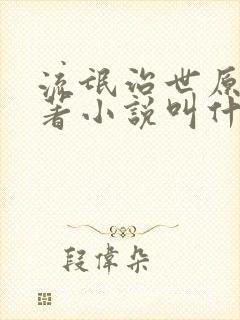 流氓治世原
著小說叫什
段偉朵